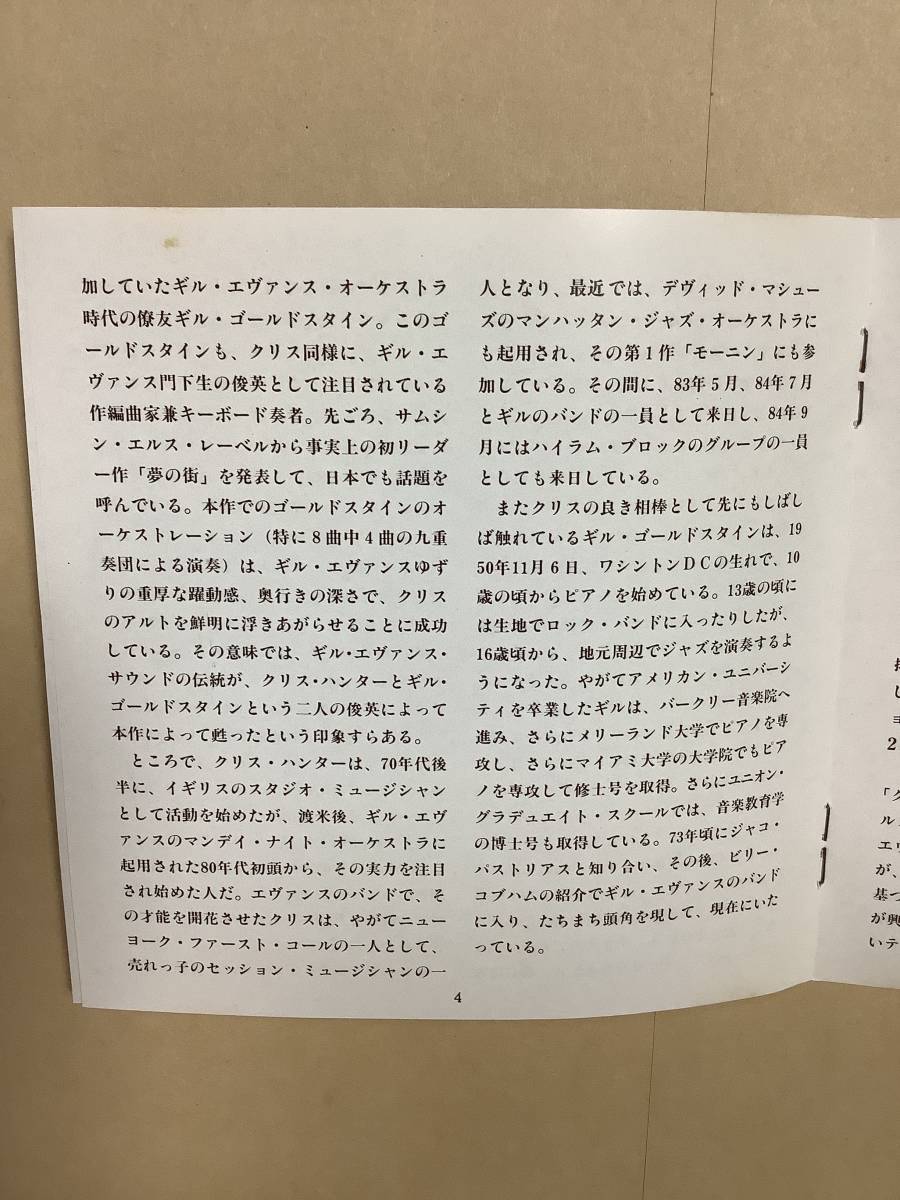 加していたギル・エヴァンス・オーケストラ
時代の僚友ギル・ゴールドスタイン。このゴ
ールドスタインも、クリス同様に、ギル・エ
ヴァンス門下生の俊英として注目されている
作編曲家兼キーボード奏者。先ごろ、サムシ
ン・エルス・レーベルから事実上の初リーダ
ー作「夢の街」を発表して、日本でも話題を
呼んでいる。本作でのゴールドスタインのオ
ーケストレーション（特に８曲中４曲の九重
奏団による演奏）は、ギル・エヴァンスゆず
りの重厚な躍動感、奥行きの深さで、クリス
のアルトを鮮明に浮きあがらせることに成功
している。その意味では、ギル・エヴァンス・
サウンドの伝統が、クリス・ハンターとギル・
ゴールドスタインという二人の俊英によって
本作によって甦ったという印象すらある。
ところで、クリス・ハンターは、70年代後
半に、イギリスのスタジオ・ミュージシャン
として活動を始めたが、渡米後、ギル・エヴ
ァンスのマンデイ・ナイト・オーケストラに
起用された80年代初頭から、その実力を注目
され始めた人だ。エヴァンスのバンドで、そ
の才能を開花させたクリスは、やがてニュー
ヨーク・ファースト・コールの一人として、
売れっ子のセッション・ミュージシャンの一
人となり、最近では、デヴィッド・マシュー
ズのマンハッタン・ジャズ・オーケストラに
も起用され、その第１作「モーニン」にも参
加している。その間に、83年５月、84年７月
とギルのバンドの一員として来日し、84年９
月にはハイラム・ブロックのグループの一員
としても来日している。
またクリスの良き相棒として先にもしばし
ば触れているギル・ゴールドスタインは、19
50年11月６日、ワシントンＤＣの生れで、10
歳の頃からピアノを始めている。13歳の頃に
は生地でロック・バンドに入ったりしたが、
16歳頃から、地元周辺でジャズを演奏するよ
うになった。やがてアメリカン・ユニバーシ
ティを卒業したギルは、バークリー音楽院へ
進み、さらにメリーランド大学でピアノを専
攻し、さらにマイアミ大学の大学院でもピア
ノを専攻して修士号を取得。さらにユニオン・
グラデュエイト・スクールでは、音楽教育学
の博士号も取得している。73年頃にジャコ・
パストリアスと知り合い、その後、ビリー・
コブハムの紹介でギル・エヴァンスのバンド
に入り、たちまち頭角を現して、現在にいた
っている。
4
し
ョ
２
「ク
ル
エヴ
が、
基づ
が興
いテ